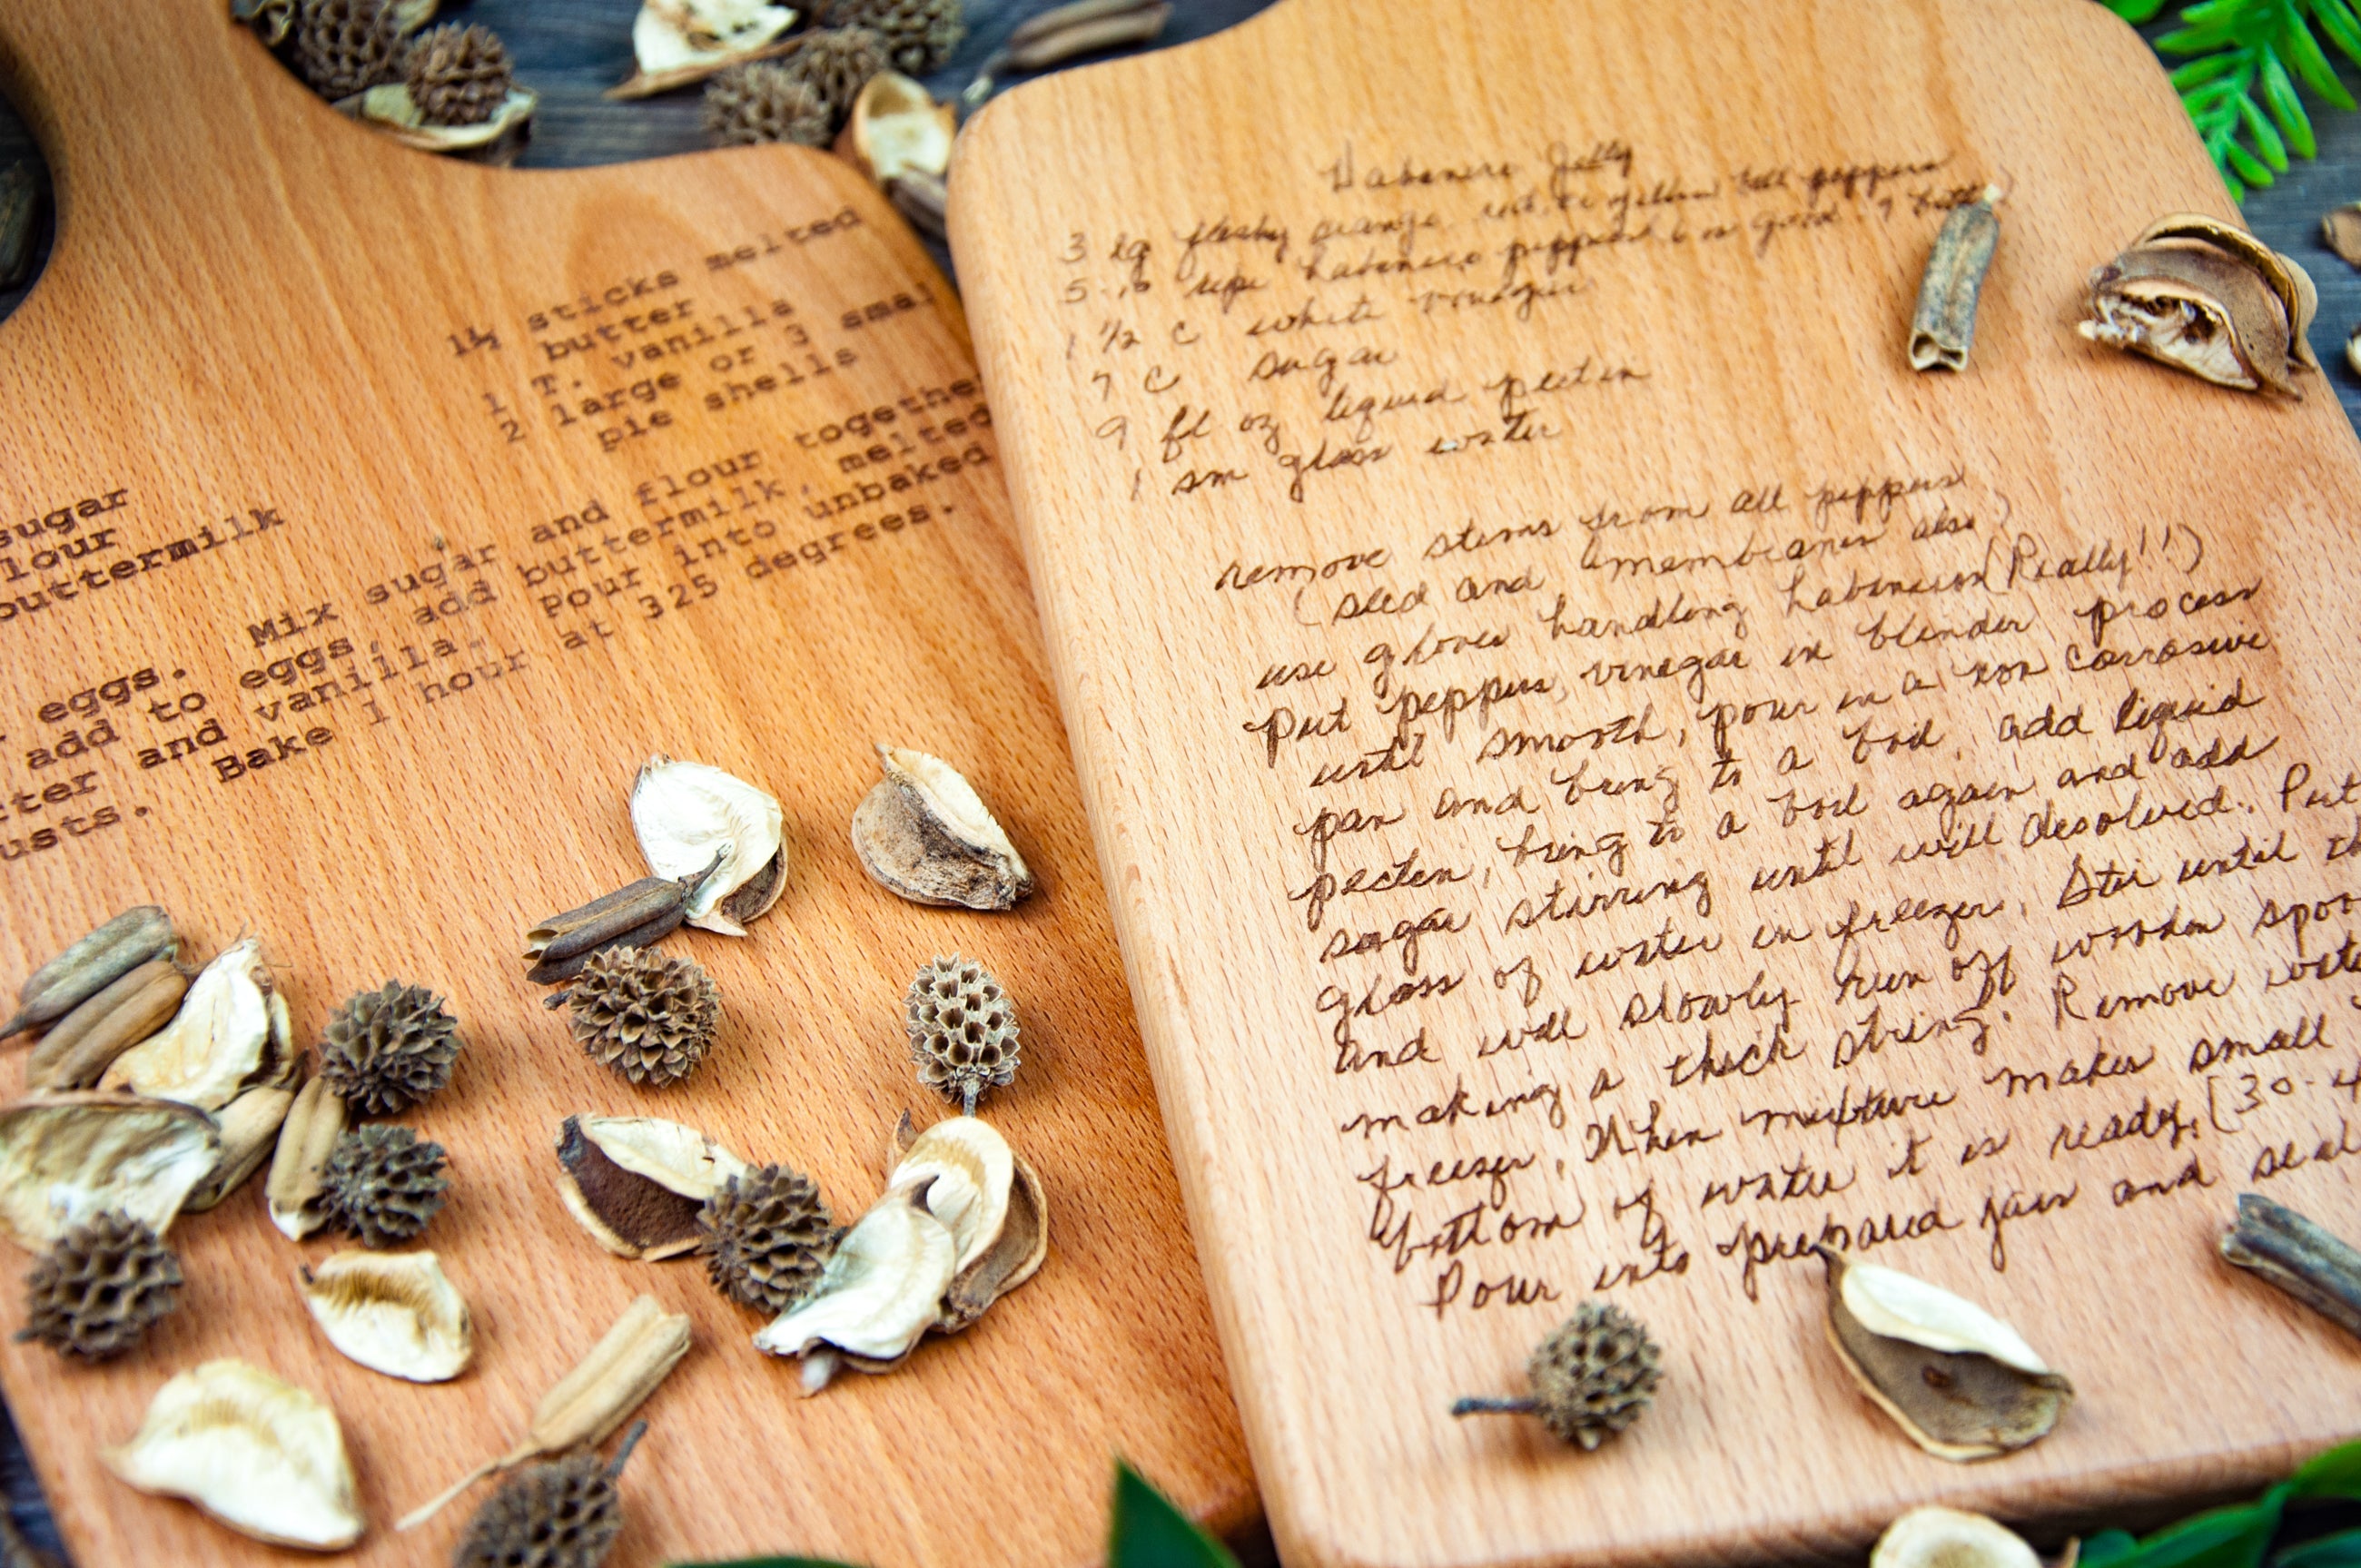 1½ sticks melted
butter
1 T. vanilla
2 large or 3 smal
pie shells
sugar
lour
buttermilk
eggs. Mix sugar and flour togethe
add to eggs, add buttermilk, melted
tter and vanilla. Pour into unbaked
usts. Bake 1 hour at 325 degrees.
Habenero Jelly
3 lg fleshy orange, red, or yellow bell peppers
5-10 ripe habenero peppers 6 is good 9
1 1/2 c white vinegar
7 c sugar
9 fl oz liquid pectin
1 sm glass water
remove stems from all peppers
(seed and membranes also)
use gloves handling habeneros (Really!!)
Put peppers, vinegar in blender process
until smooth, pour in a non corrosive
pan and bring to a boil, add liquid
pectin, bring to a boil again and add
sugar stirring until well desolved. Put
glass of water in freezer. Stir until th
and will slowly run off wooden spoo
making a thick string. Remove wate
freezer. When mixture makes small
bottom of water it is ready. (30-4
Pour into prepared jars and seal